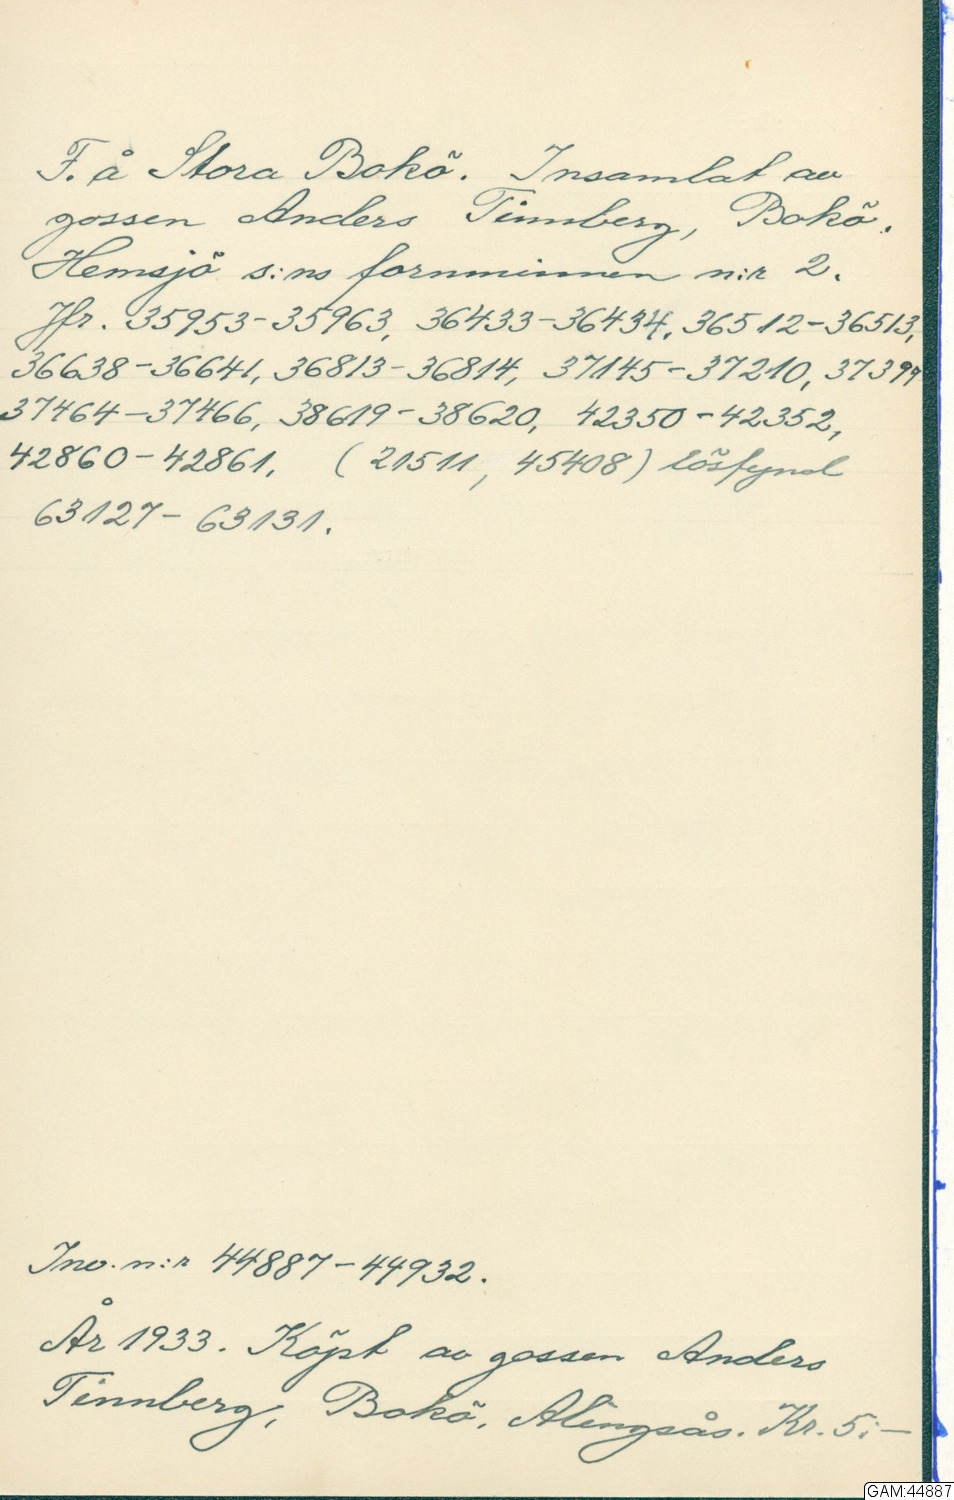 F. å Stora Bokö. Insamlat av
gossen Anders Tinnberg, Bokö.
Hemsjö s:ns fornminnen n:r 2.
Jfr. 35953-35963, 36433-36434, 36512-36513,
36638-36641, 36813-36814, 37145-37210, 37399
37464-37466, 38619-38620, 42350-42352,
42860-42861, (21511, 45408) lösfynd
63127-63131.
Inv. n:r 44887-44932.
År 1933. Köpt av gossen Anders
Tinnberg, Bokö, Alingsås. Kr. 5:-
GAM:44887